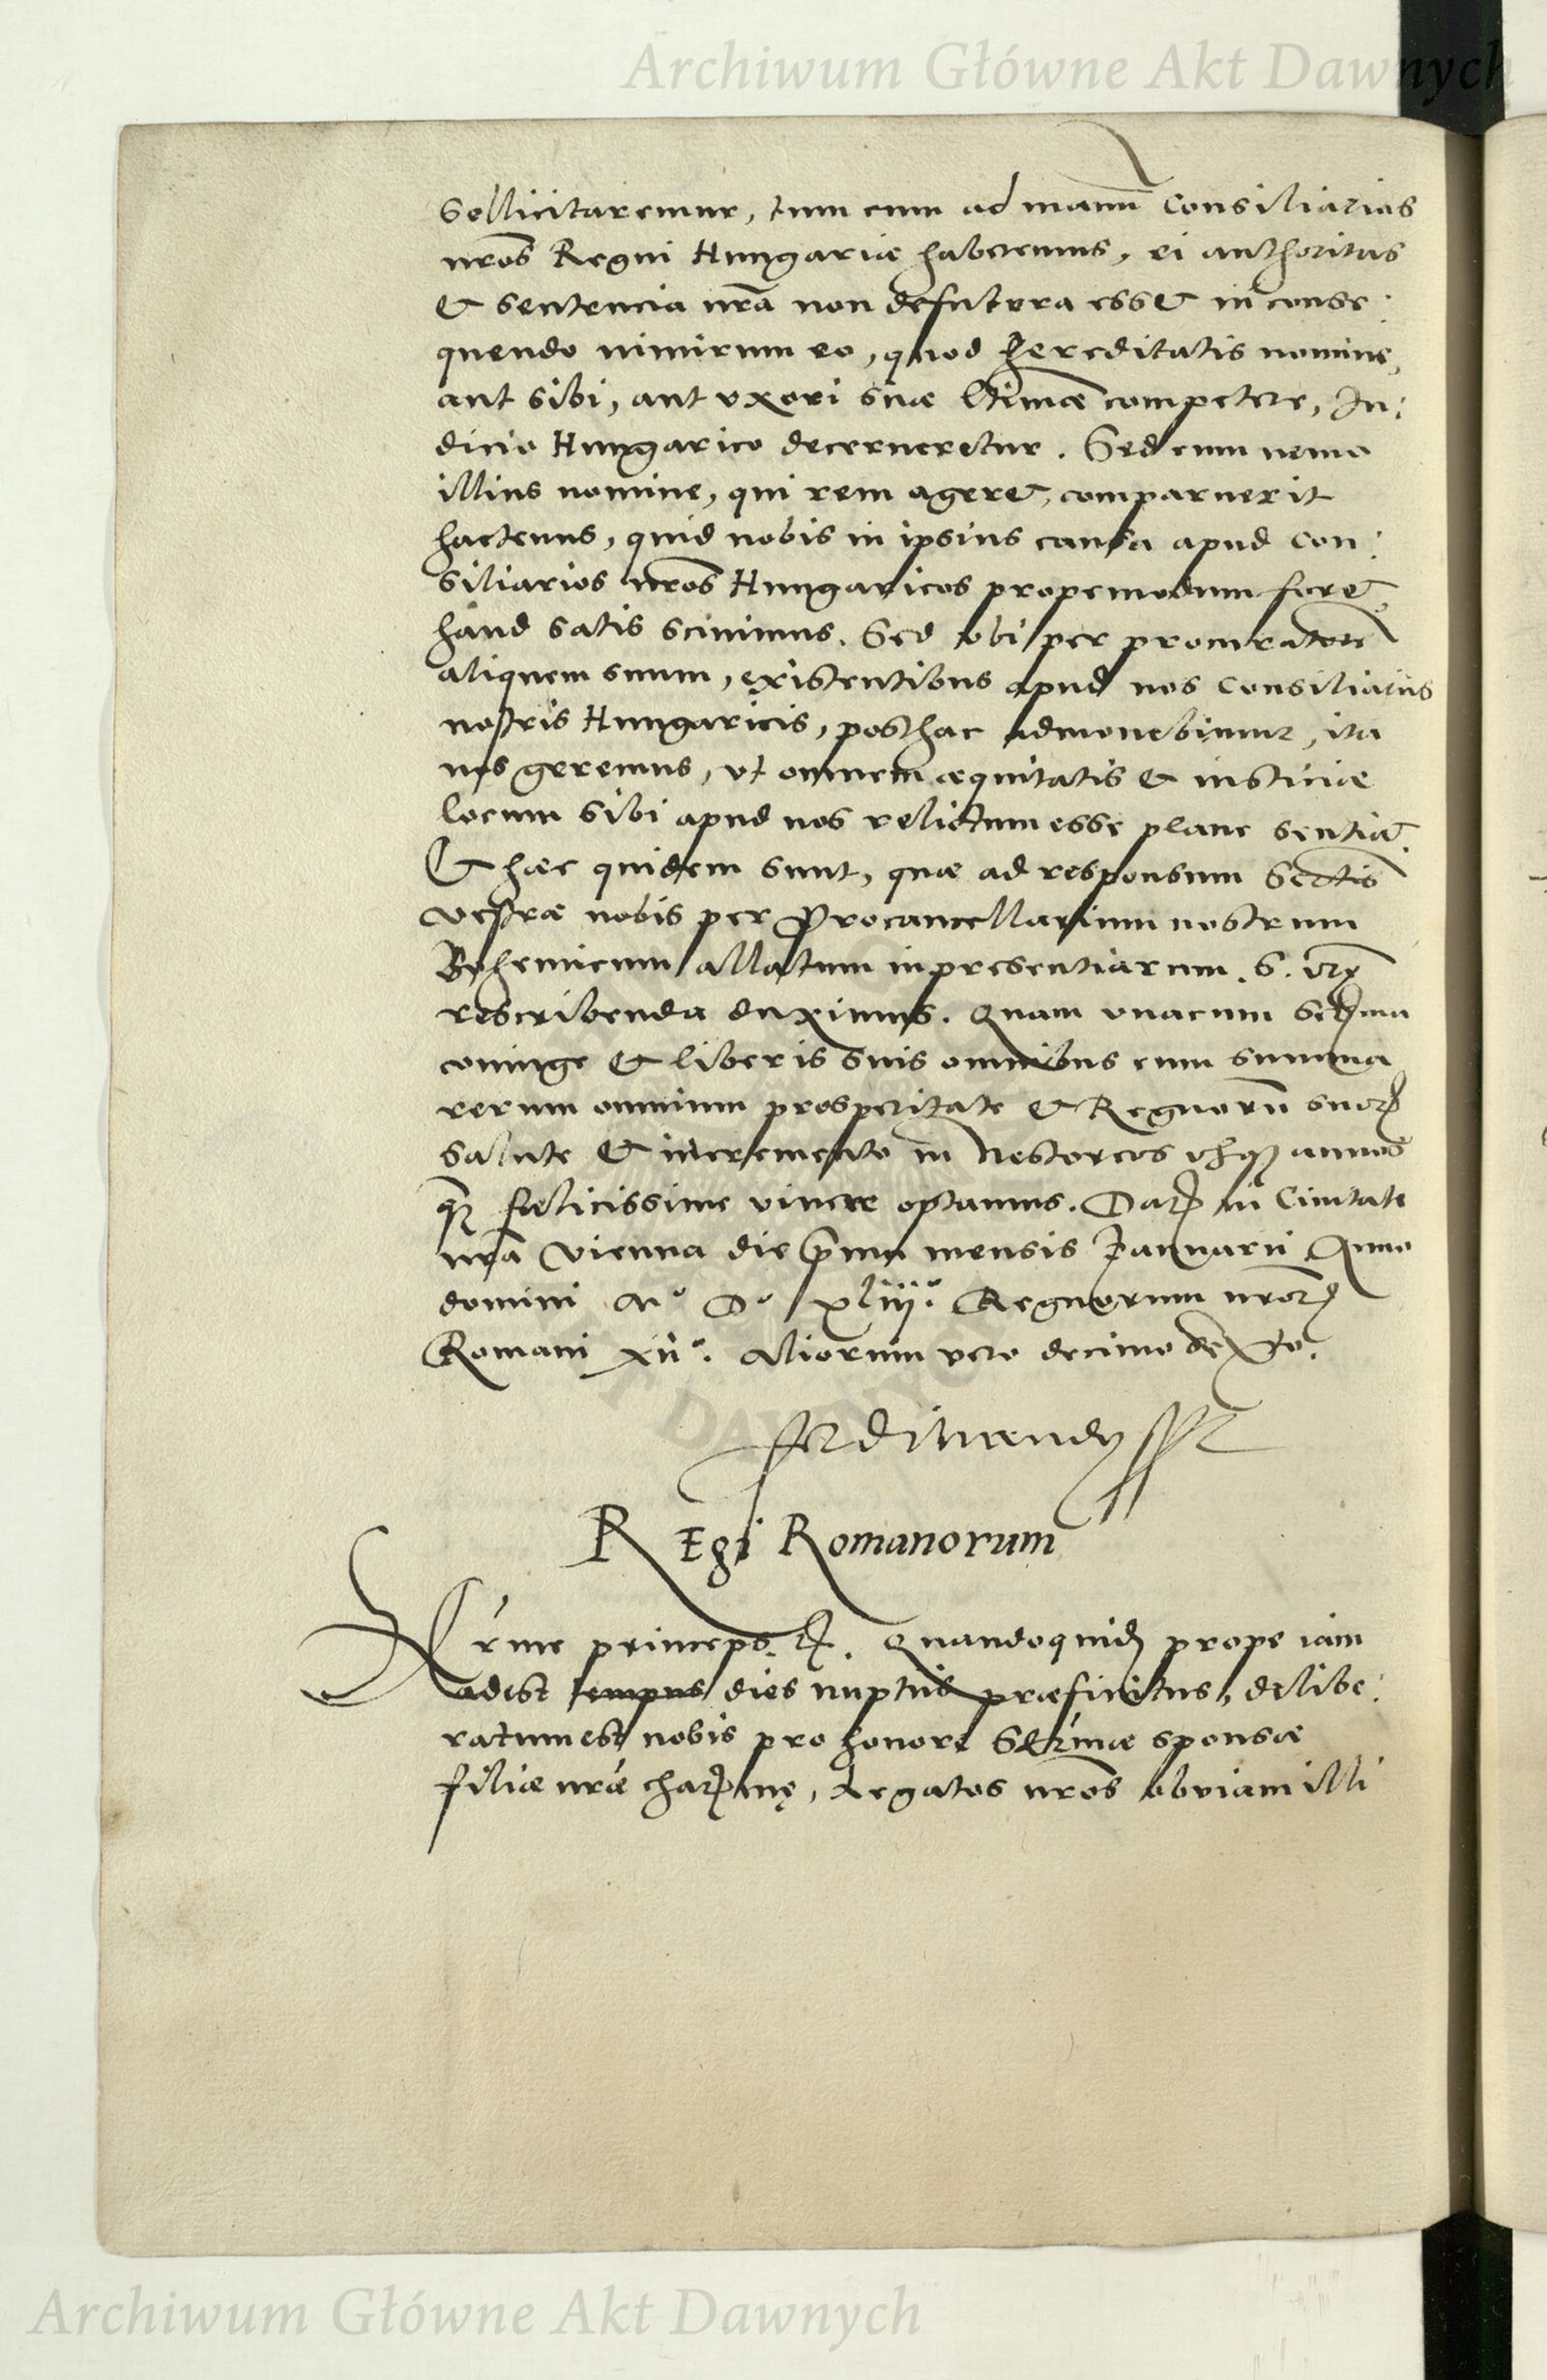 Archiwum Główne Akt Dawnych
sollicitaremur, tum cum ad manū Consiliarios
nr̃os Regni Hungariæ haberemus, ei authoritas
et sentencia nr̃a non defutura esset in conse:
quendo nimirum eo, quod hereditatis nomine,
aut sibi, aut uxori suæ l̃timæ competere, Iu:
dicio Hungarico decerneretur. Sed cum nemo
illius nomine, qui rem ageret, comparuerit
hactenus, quid nobis in ipsius causa apud con:
siliarios nr̃os Hungaricos propemodum foret,
haud satis scivimus. Sed ubi per procuratorē
aliquem suum, existentibus apud nos Consiliariis
nostris Hungaricis, posthac admonebimur, ita
nos geremus, ut omnem æquitatis et iusticiæ
locum sibi apud nos relictum esse plane sentiat.
Et hæc quidem sunt, quæ ad responsum Sertis
vestræ nobis per Procancellarium nostrum
Bohemicum allatum in presentiarum S. vrę
rescribenda duximus. Quam unacum Serma
coniuge et liberis suis omnibus cum summa
rerum omnium prosperitate et Regnorū suorꝝ
salute et incremento in Nestoreos usqꝫ annos
qꝫ fœlicissime vivere optamus. Datꝫ in Civitate
nr̃a Vienna die prima mensis Januarii Anno
domini Mº Dº xliijº. Regnorum nr̃orꝝ
Romani xiiº. Aliorum vero decimo sexto.
Ferdinandus
REgi Romanorum
Sr̃me princeps etc. Quandoquidē prope iam
adest tempus dies nuptiis præfinitus, delibe:
ratum est nobis pro honore Ser̃mæ sponsæ
filiæ nr̃æ charꝫmę, Legatos nr̃os obviam illi
Archiwum Główne Akt Dawnych